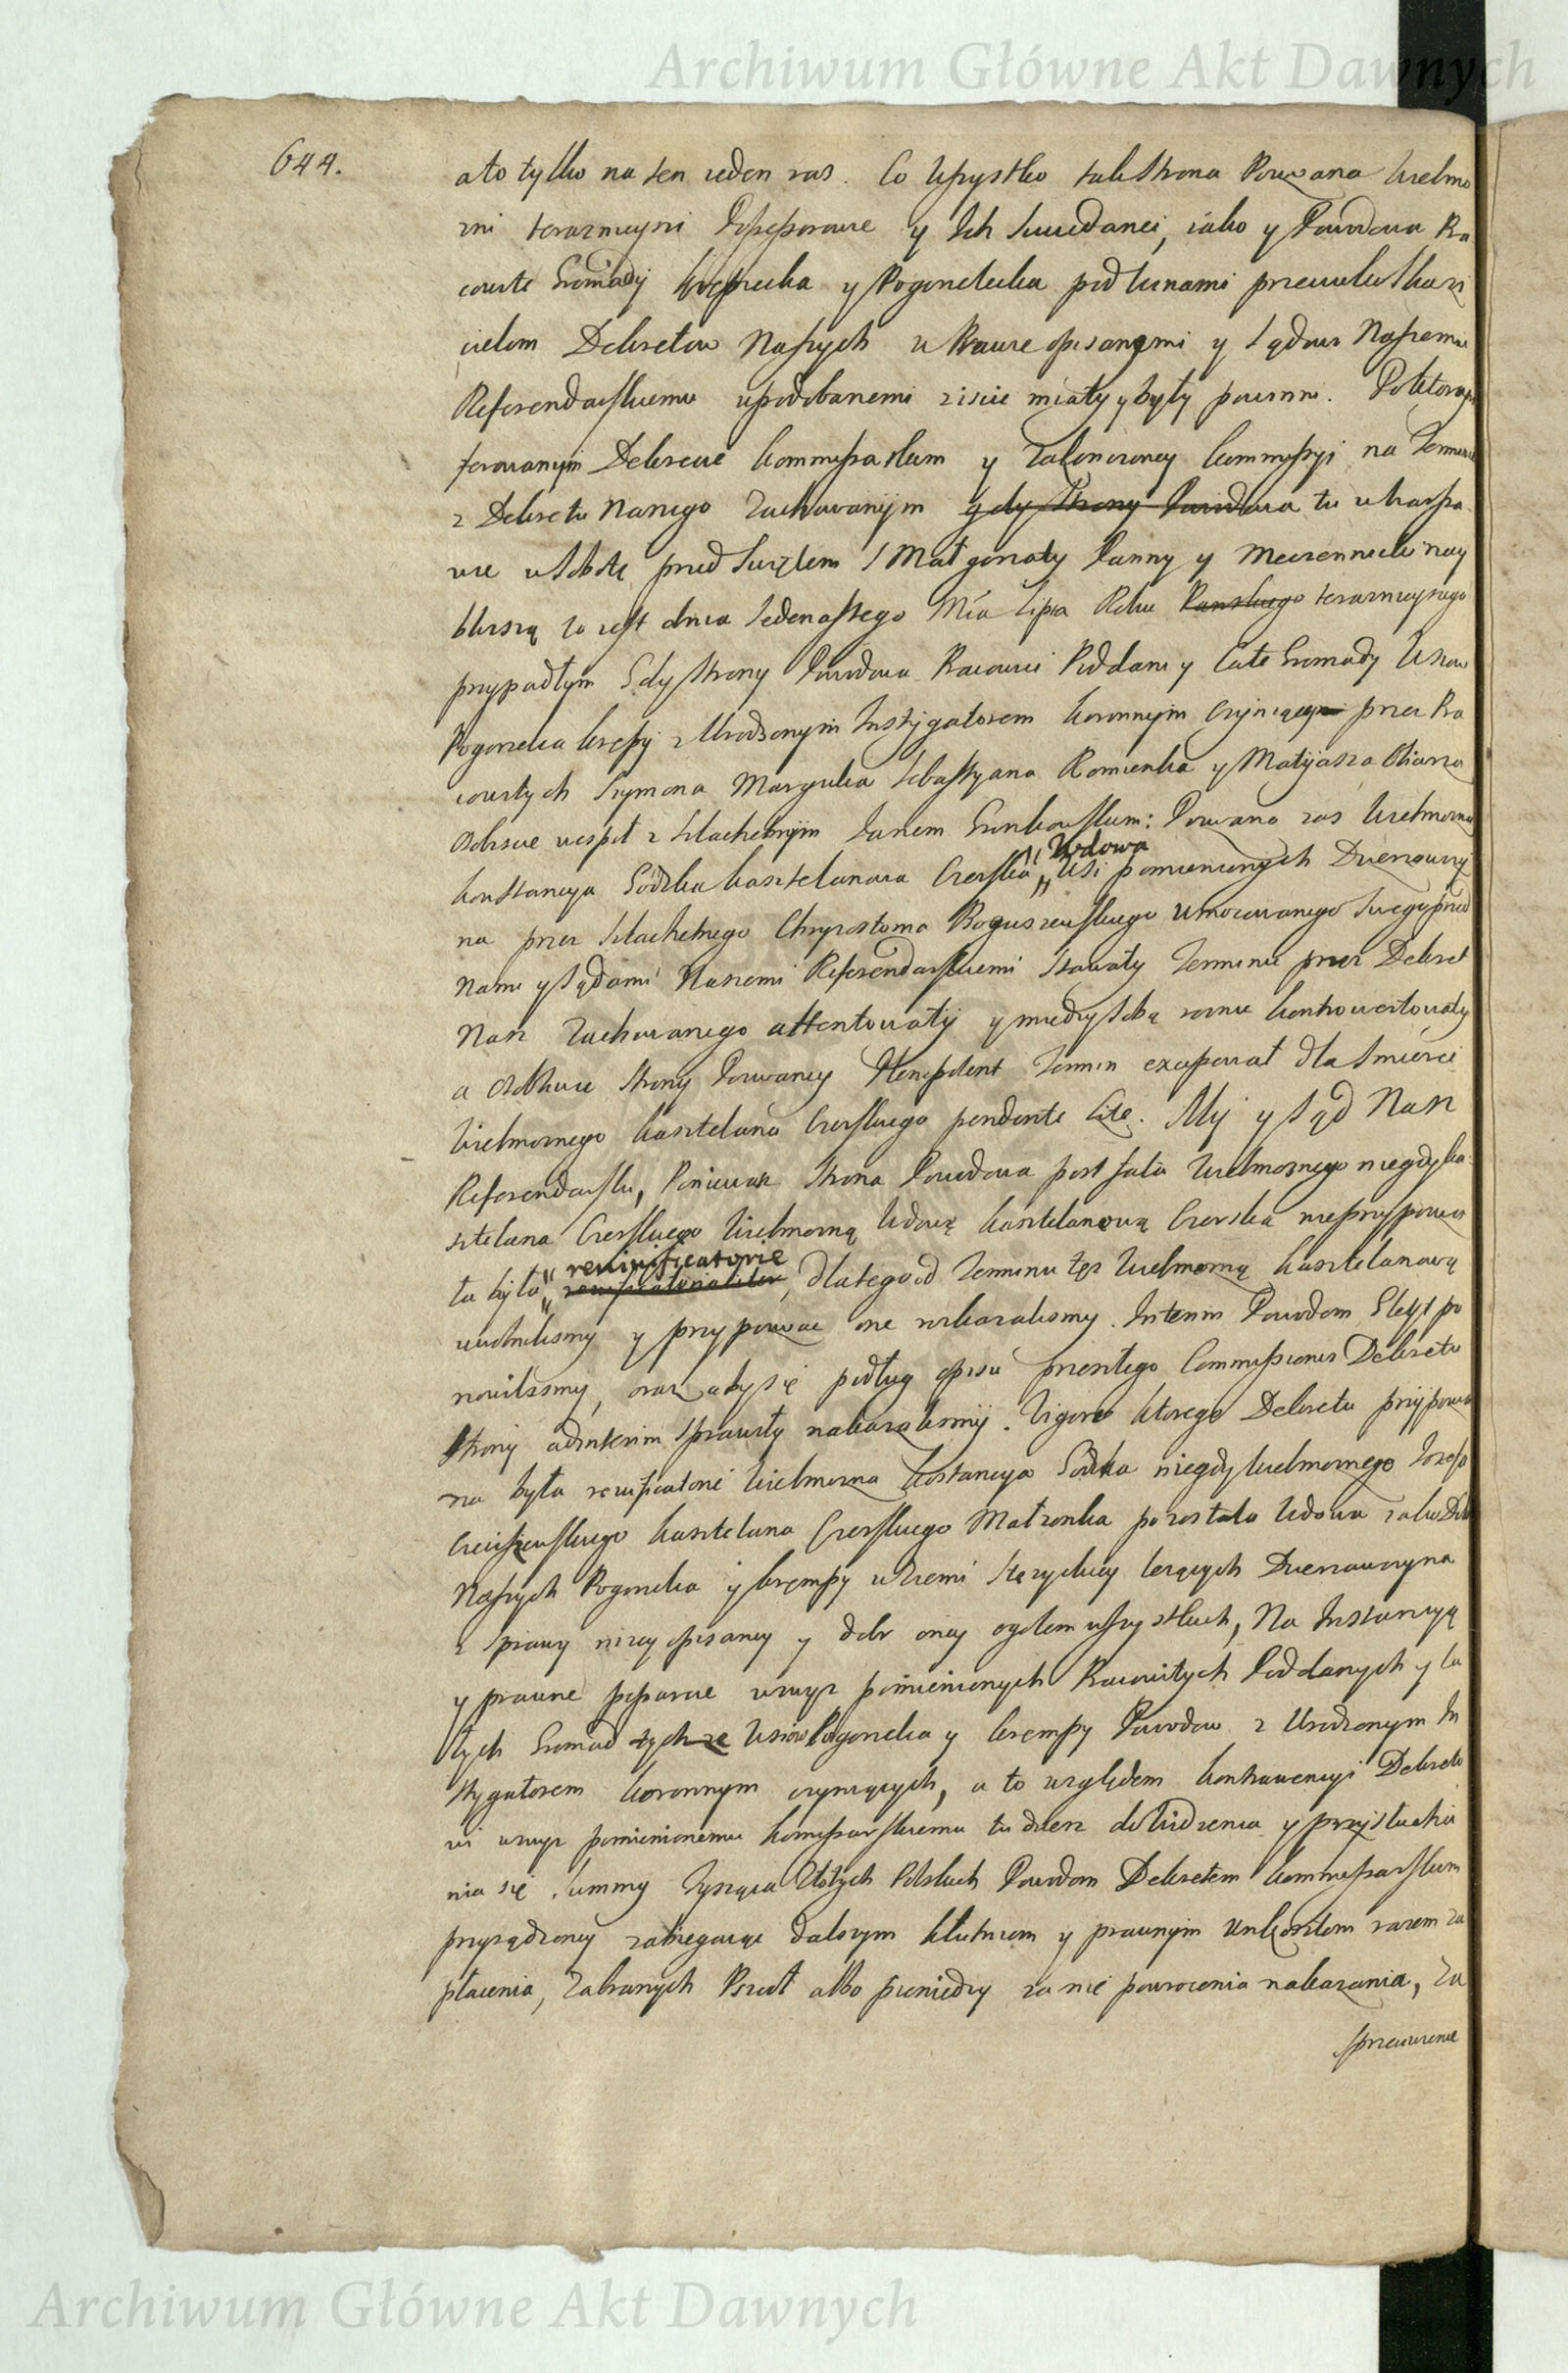 Archiwum Główne Akt Dawnych
644.
a to tylko na ten ieden raz. Co wszystko tak Strona Pozwana Wielmo
zni teraznieysi Possessorowie y Ich Succedanei, iako y Powodowa Pra
cowite Gromady Krępecka y Pogonelecka pod winami przeciwko Skazi
cielom Dekretow Naszych w Prawie opisanymi y Sądowi Naszemu
Referendarskiemu upodobanemi ziscic miały y były powinni. Po ktorym
ferowanym Dekrecie Kommissarskim y zakonczoney Kommissyi na Terminie
z Dekretu Naszego Zachowanym gdy Strony Powodowa tu w Warsza
wie w Sobotę przed Swiętem S Małgorzaty Panny y Męczenniczki nay
bliszą to iest dnia Iedenastego Mća Lipca Roku Panskiego teraznieyszego
przypadłym Gdy Strony Powodowa Pracowici Poddani y Całe Gromady Wsiow
Pogonelca Krępy z Urodzonym Instygatorem Koronnym Czyniący przez Pra
cowitych Szymona Sebastyana y Matyiasza
Osobiscie wespoł z Szlachetnym Janem Pozwana zas Wielmozna
Konstancya Kasztelanowa Czerska „Wdowa„ Wsi pomienionych Dzierzawczy
na przez Szlachetnego Chryzostoma Boguszewskiego Umocowanego Swego przed
Nami y Sądami Naszemi Referendarskiemi Stawały Terminu przez Dekret
Nasz Zachowanego attentowały y między Sobą rownie kontrowertowały
a Osobliwie Strony Pozwaney Plenipotent Termin excypował dla Smierci
Wielmoznego Kasztelana Czerskiego pendente Lite. My y Sąd Nasz
Referendarski, Poniewasz Strona Powodowa post fata Wielmoznego niegdy Ka
sztelana Czerskiego Wielmozną Wdowę Kasztelanową Czerska nieprzypozwa
ta była „reviuificatorie„, dlatego od Terminu tęz Wielmozną Kasztelanową
uwolnilismy y przypozwac one rozkazalismy. Interim Powodom Gleyt po
nowilismy, oraz aby się podług opisu przeszłego Commissionis Dekretu
Strony adinterim sprawiły nakazalismy. Vigore ktorego Dekretu przypozwa
na była reuificatorie Wielmozna Konstancya niegdy Wielmoznego Jozefa
Kasztelana Czerskiego Małzonka pozostała Wdowa iako Dobr
Naszych Pogonelca y Krempy w Ziemi Stęzyckiey lezących Dzierzawczyna
z Sprawy nizey opisaney y dobr oney ogołem wszystkich, Na Instancyą
y prawne poparcie wzwyz pomienionych Pracowitych Poddanych y Ca
łych Gromad tychze Wsiow Pogonelca y Krempy Powodow z Urodzonym In
stygatorem Koronnym czyniących, a to względem kontrawencyi Dekreto
wi wzwyz pomienionemu Komissarskiemu tudziez do Widzenia y przysłucha
nia się Summy Tysiąca Złotych Polskich Powodom Dekretem Kommissarskim
przysądzoney zabiegaiąc dalszym kłutniom y prawnym Unkosztom razem za
płacenia, Zabranych Pszczoł albo pieniędzy za nie powrocenia nakazania, Za
sprzeciwienie
Archiwum Główne Akt Dawnych